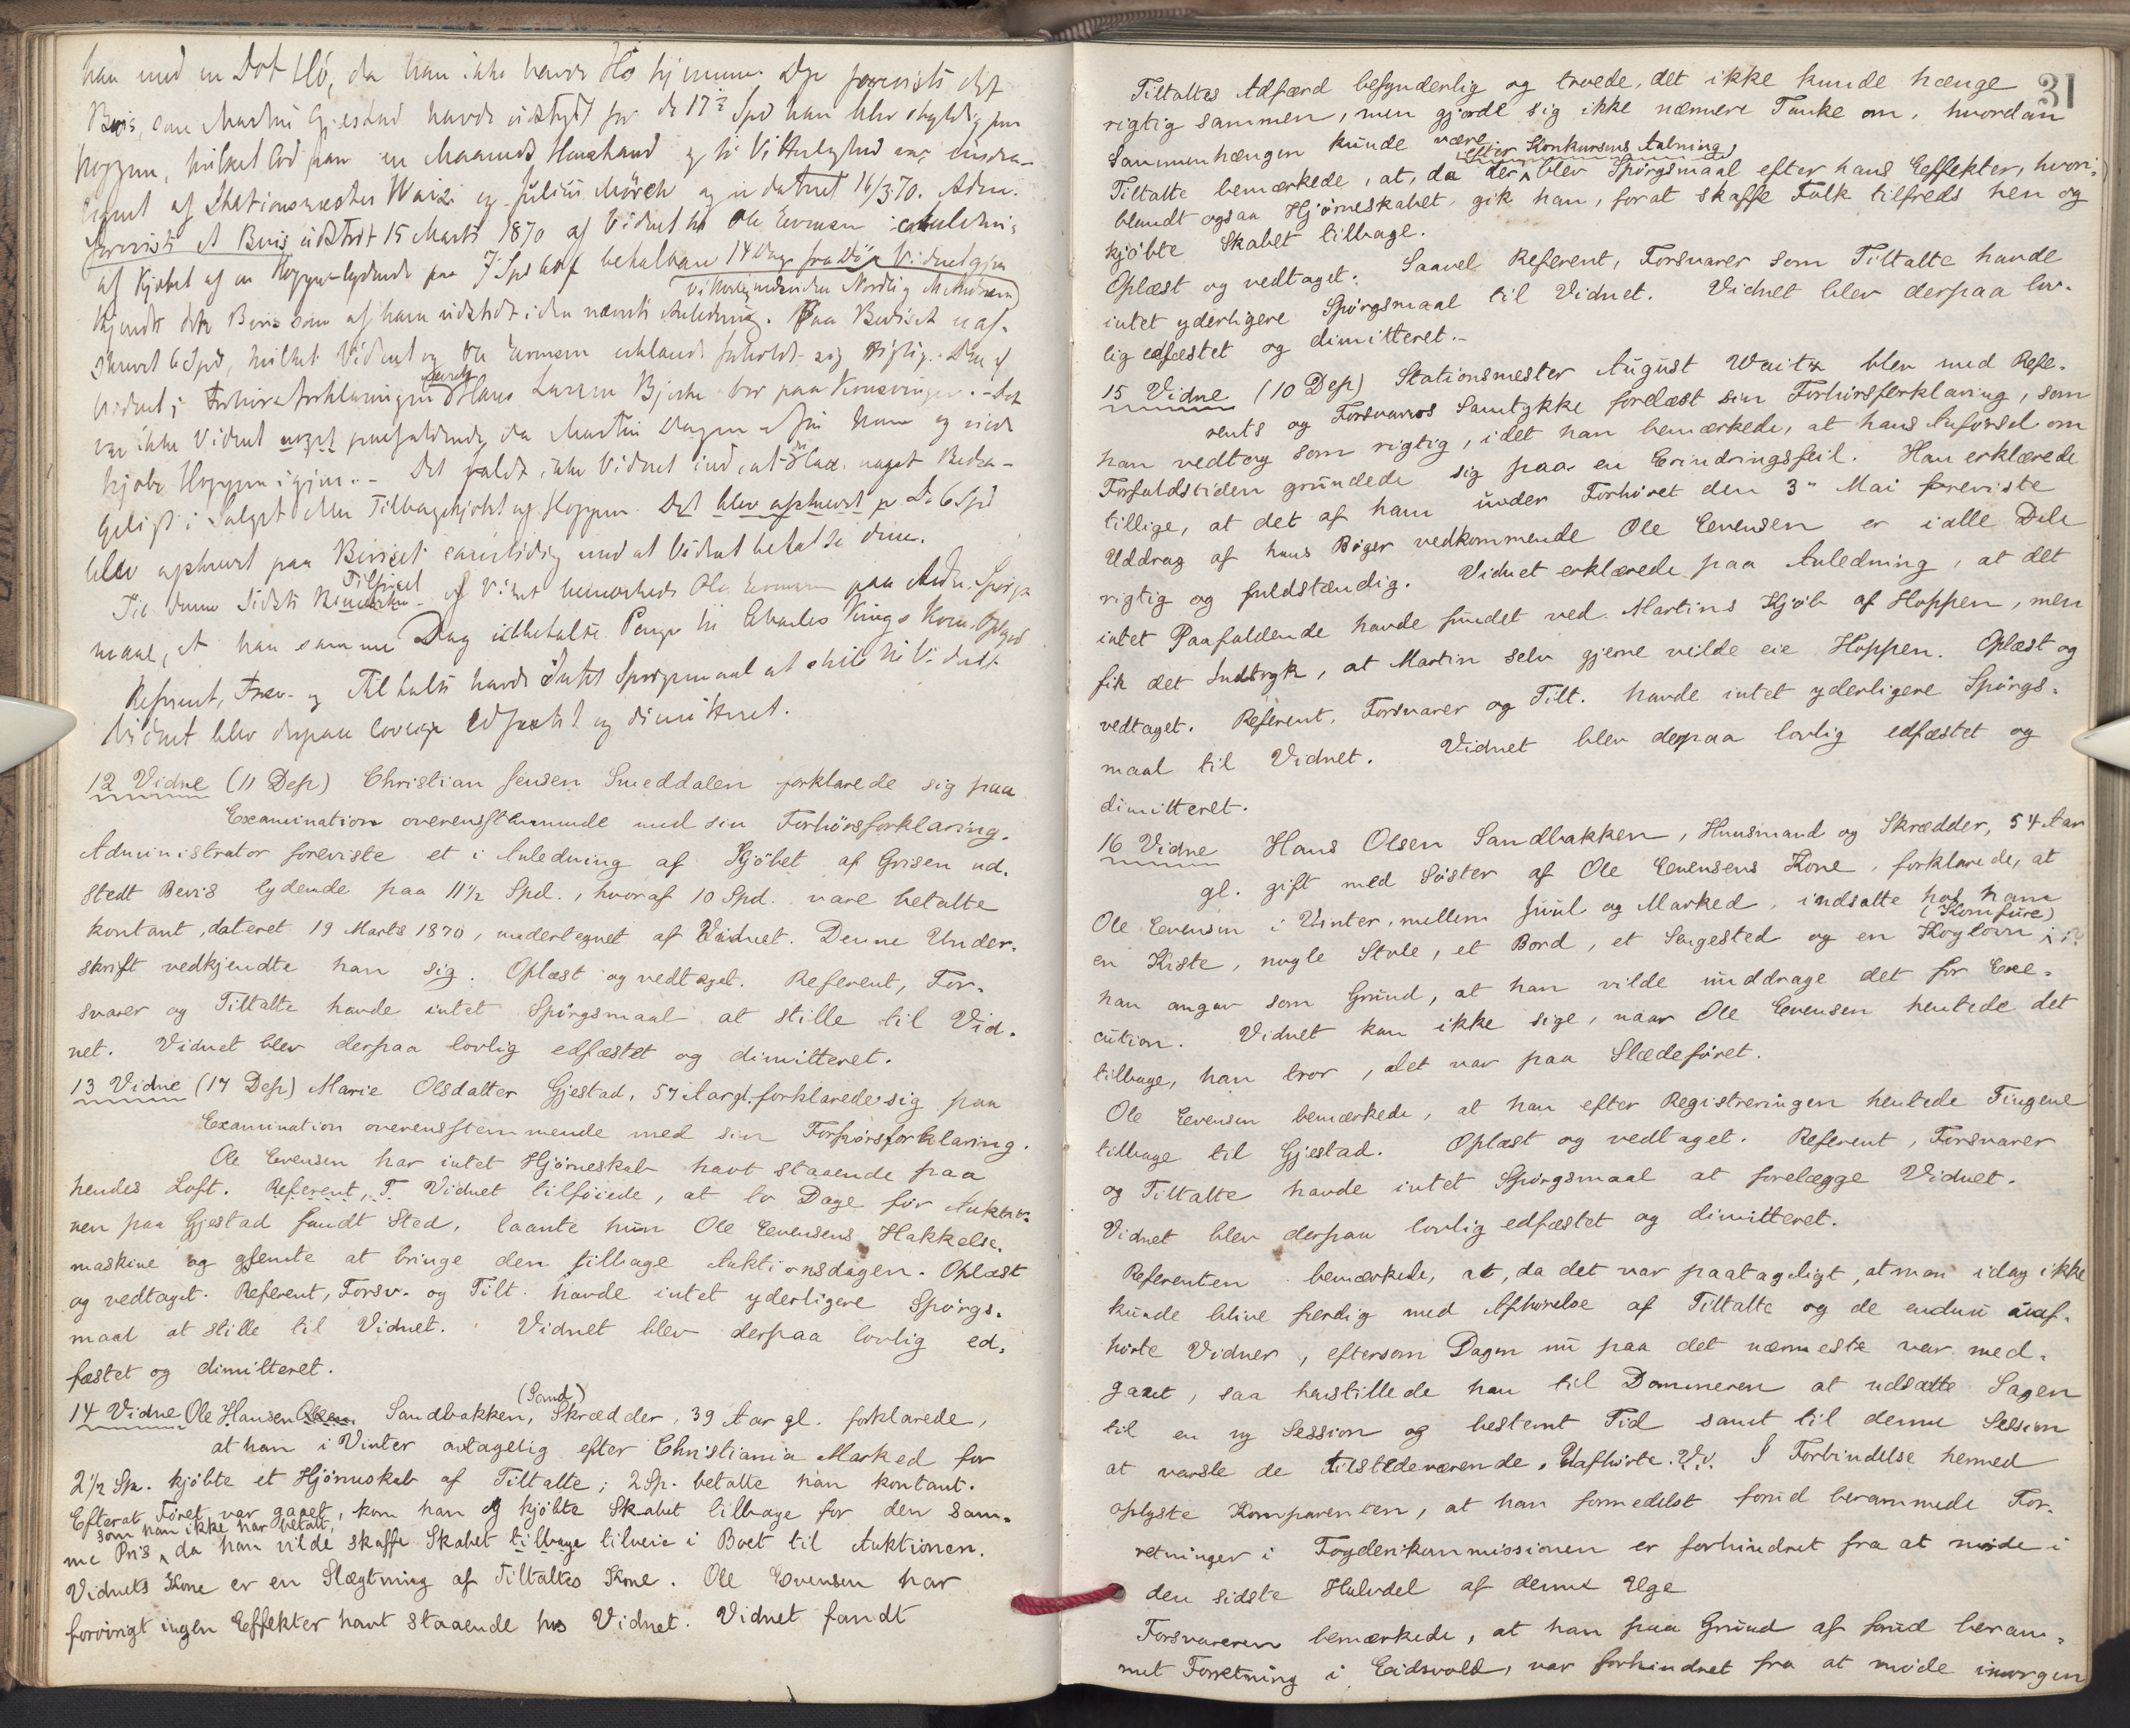 han med en Dot Hö, da han ikke havde Hö hjemme. Der forevistes det
Bevis, som Martin Gjestad havde udstedt for de 17½ Spd han blev skyldig for
Hoppen, hvilket lød paa en Maaneds Henstand og til Vitterlighed var under-
tegnet af Stationsmester Waitz og Julius Mörch og er dateret 16/3 70. Adm.
foreviste et Bevis udstedt 15 Marts 1870 af Vidnet til Ole Evensen i Anledning
af Kjøbet af en Hoppe lydende paa 7 Spd betalbare 14 Dage fra Dato. Vidnet gjen-
(Vitterlighedsvidner Nordlig M. Andersen)
kjendte dette Bevis som af ham udstedt i den nævnte Anledning. Paa Beviset er af-
skrevet 6 Spd, hvilket Vidnet og Ole Evensen erklærede forholdt sig rigtig. Den af
Vidnet i Forhørsforklaringen nævnte Hans Larsen Bjerke bor paa Kongsvinger. - Det
var ikke Vidnet noget paafaldende, da Martin Dagen efter kom og vilde
kjøbe Hoppen igjen. - Det faldt ikke Vidnet ind, at der laa noget Bedra-
geligt i Salget eller Tilbagekjøbet af Hoppen. Det blev afskrevet De 6 Spd
blev afskrevet paa Beviset samtidig med at Vidnet betalte dem.
Til denne sidste Tilføiel af Vidnet bemærkede Ole Evensen paa Adm. Spørgs-
maal, at han samme Dag udbetalte Penge til Charles Kings Korn Oplag
Referent, Forsv. og Tiltalte havde Intet Spørgsmaal at stille til Vidnet.
Vidnet blev derpaa lovlig edfæstet og dimitteret.
12 Vidne (11 Dep) Christian Jensen Smeddalen forklarede sig paa
Examination overensstemmende med sin Forhørsforklaring.
Administrator foreviste et i Anledning af Kjøbet af Grisen ud-
stedt Bevis lydende paa 11½ Spd., hvoraf 10 Spd. vare betalte
kontant, dateret 19 Marts 1870, undertegnet af Vidnet. Denne Under-
skrift vedkjendte han sig. Oplæst og vedtaget. Referent, For-
svarer og Tiltalte havde intet Spørgsmaal at stille til Vid-
net. Vidnet blev derpaa lovlig edfæstet og dimitteret.
13 Vidne (17 Dep) Marie Olsdatter Gjestad, 57 Aar gl. forklarede sig paa
Examination overensstemmende med sin Forhørsforklaring.
Ole Evensen har intet Hjørneskab havt staaende paa
hendes Loft. Referent, T Vidnet tilføiede, at to Dage før Auktio-
nen paa Gjestad fandt Sted, laante hun Ole Evensens Hakkelse-
maskine og glemte at bringe den tilbage Auktionsdagen. Oplæst
og vedtaget. Referent, Forsv. og Tilt. havde intet yderligere Spørgs-
maal at stille til Vidnet. Vidnet blev derpaa lovlig ed-
fæstet og dimitteret.
(Sand)
14 Vidne Ole Hansen Olsen Sandbakken, Skrædder, 39 Aar gl. forklarede,
at han i Vinter antagelig efter Christiania Marked for
2½ Sp. kjøbte et Hjørneskab af Tiltalte; 2 Sp. betalte han kontant.
Efterat Føret var gaaet, kom han og kjøbte Skabet tilbage for den sam-
som han ikke har betalt,
me Pris, da han vilde skaffe Skabet tilbage tilveie i Boet til Auktionen.
Vidnets Kone er en Slægtning af Tiltaltes Kone. Ole Evensen har
forøvrigt ingen Effekter havt staaende hos Vidnet. Vidnet fandt
31
Tiltaltes Adfærd besynderlig og troede, det ikke kunde hænge
rigtig sammen, men gjorde sig ikke nærmere Tanke om, hvordan
Sammenhængen kunde være
efter Konkursens Aabning
Tiltalte bemærkede, at, da der blev Spørgsmaal efter hans Effekter, hvori-
blandt ogsaa Hjørneskabet, gik han, for at skaffe Folk tilfreds hen og
kjøbte Skabet tilbage.
Oplæst og vedtaget. Saavel Referent, Forsvarer som Tiltalte havde
intet yderligere Spørgsmaal til Vidnet. Vidnet blev derpaa lov-
lig edfæstet og dimitteret.-
15 Vidne (10 Dep) Stationsmester August Waitz blev med Refe-
rents og Forsvarers Samtykke forelæst sin Forhørsforklaring, som
han vedtog som rigtig, idet han bemærkede, at hans Anførsel om
Forfaldstiden grundede sig paa en Erindringsfeil. Han erklærede
tillige, at det af ham under Forhøret den 3" Mai foreviste
Uddrag af hans Bøger vedkommende Ole Evensen er i alle Dele
rigtig og fuldstændig. Vidnet erklærede paa Anledning, at det
intet Paafaldende havde fundet ved Martins Kjøb af Hoppen, men
fik det Indtryk, at Martin selv gjerne vilde eie Hoppen. Oplæst og
vedtaget. Referent, Forsvarer og Tilt. havde intet yderligere Spørgs-
maal til Vidnet. Vidnet blev derpaa lovlig edfæstet og
dimitteret.
16 Vidne Hans Olsen Sandbakken, Huusmand og Skrædder, 54 Aar
gl. gift med Søster af Ole Evensens Kone, forklarede, at
Ole Evensen i Vinter, mellem Juul og Marked, indsatte hos ham
(Komfure)
en Kiste, nogle Stole, et Bord, et Sengested og en Kogeovn;
han angav som Grund, at han vilde unddrage det for Exe-
cution. Vidnet kan ikke sige, naar Ole Evensen hentede det
tilbage, han tror, det var paa Slædeføret.
Ole Evensen bemærkede, at han efter Registreringen hentede Tingene
tilbage til Gjestad. Oplæst og vedtaget. Referent, Forsvarer
og Tiltalte havde intet Spørgsmaal at forelægge Vidnet.
Vidnet blev derpaa lovlig edfæstet og dimitteret.
Referenten bemærkede, at, da det var paatageligt, at man idag ikke
kunde blive færdig med Afhørelse af Tiltalte og de endnu uaf-
hørte Vidner, eftersom Dagen nu paa det nærmeste var med-
gaaet, saa henstillede han til Dommeren at udsætte Sagen
til en ny Session og bestemt Tid samt til denne Session
at varsle de tilstedeværende, Uafhørte Vv. I Forbindelse hermed
oplyste Komparenten, at han formedelst forud berammede For-
retninger i Fogderikommissionen er forhindret fra at møde i
den sidste Halvdel af denne Uge
Forsvareren bemærkede, at han paa Grund af forud beram-
met Forretning i Eidsvold, var forhindret fra at møde imorgen